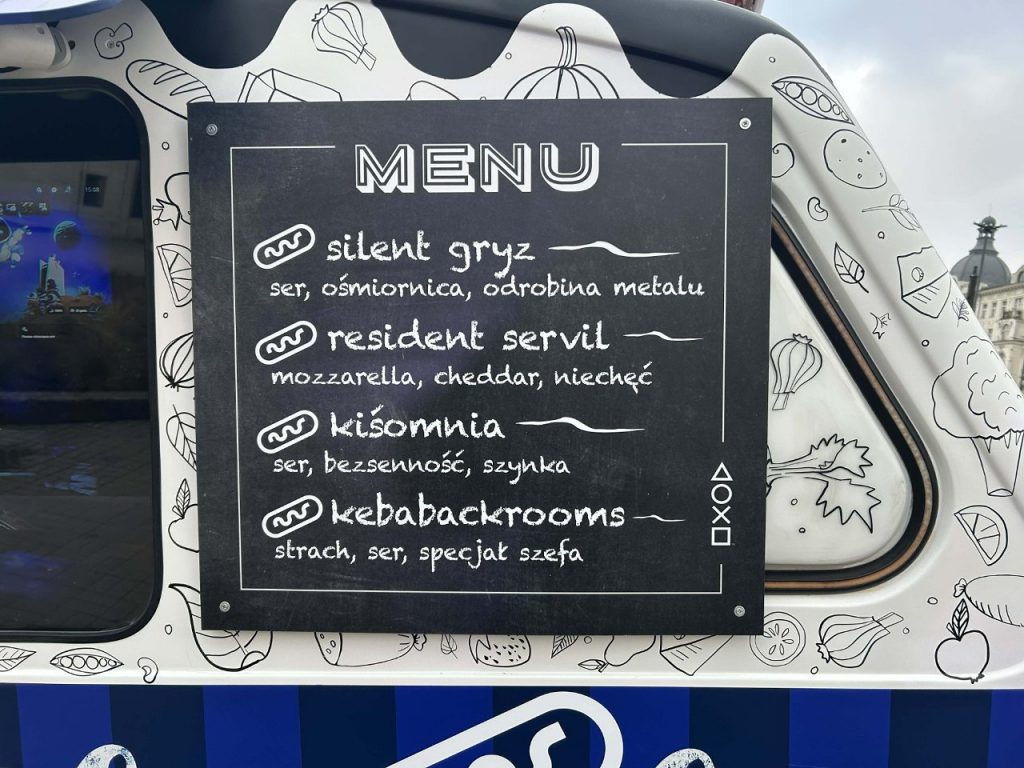 MENU
silent gryz
ser, ośmiornica, odrobina metalu
resident servil
mozzarella, cheddar, niechęć
kiśomnia
ser, bezsenność, szynka
kebabackrooms
strach, ser, specjał szefa
15:08